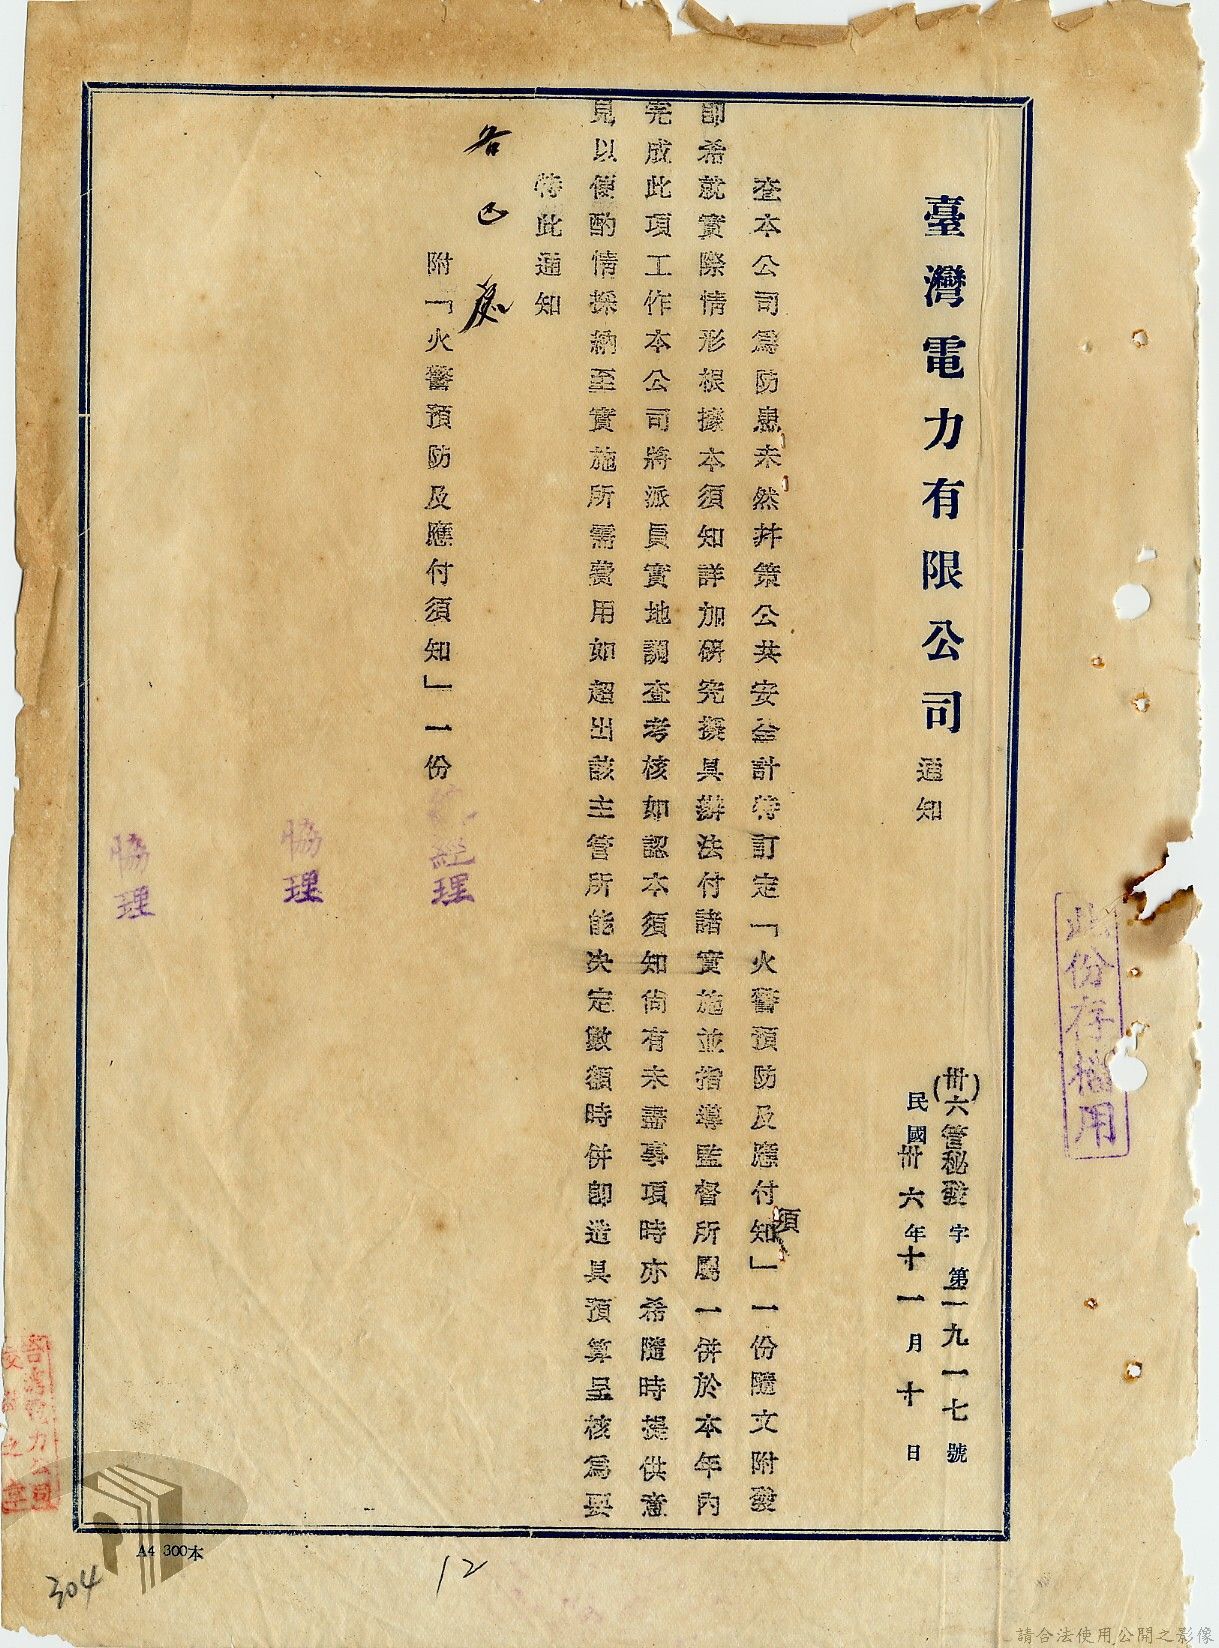 臺灣電力有限公司 通知
(卅六)管秘發字第一九一一七號
民國卅六年十一月十日
此份存檔用
查本公司為防患未然幷策公共安全計特訂定「火警預防及應付須知」一份隨文附發
即希就實際情形根據本須知詳加研究擬具辦法付諸實施並指導監督所屬一併於本年內
完成此項工作本公司將派員實地調查考核如認本須知尚有未盡事項時亦希隨時提供意
見以便酌情採納至實施所需費用如超出該主管所能决定數額時併即造具預算呈核為要
特此通知
各 處
附「火警預防及應付須知」一份
經理
協理
協理
台灣電力公司
A4 300本
304
12
請合法使用公開之影像